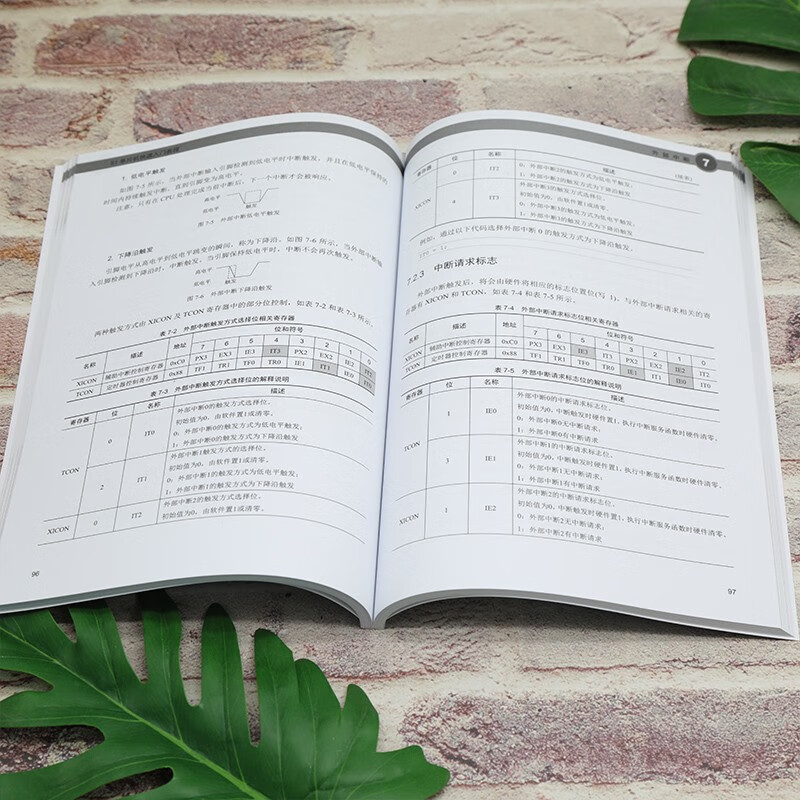 1. 低电平触发
如图 7-5 所示，当外部中断输入引脚检测到低电平时中断触发，并且在低电平保持的
时间内持续触发中断，直到引脚变为高电平。
注意，只有在 CPU 处理完成当前中断后，下一个中断才会被响应。
高电平
低电平
触发
图 7-5 外部中断低电平触发
2. 下降沿触发
引脚电平从高电平到低电平跳变的瞬间，称为下降沿。如图 7-6 所示，当外部中断输
入引脚检测到下降沿时，中断触发，当引脚保持低电平时，中断不会再次触发。
高电平
低电平
触发
图 7-6 外部中断下降沿触发
两种触发方式由 XICON 及 TCON 寄存器中的部分位控制，如表 7-2 和表 7-3 所示。
表 7-2 外部中断触发方式选择位相关寄存器
名称 描述 地址 位和符号
7 6 5 4 3 2 1 0
XICON 辅助中断控制寄存器 0xC0 PX3 EX3 IE3 IT3 PX2 EX2 IE2 IT2
TCON 定时器控制寄存器 0x88 TF1 TR1 TF0 TR0 IE1 IT1 IE0 IT0
表 7-3 外部中断触发方式选择位的解释说明
寄存器 位 名称 描述
TCON 0 IT0 外部中断0的触发方式选择位。
初始值为0，由软件置1或清零。
0：外部中断0的触发方式为低电平触发；
1：外部中断0的触发方式为下降沿触发
2 IT1 外部中断1触发方式的选择位。
初始值为0，由软件置1或清零。
0：外部中断1的触发方式为低电平触发；
1：外部中断1的触发方式为下降沿触发
XICON 0 IT2 外部中断2的触发方式选择位。
初始值为0，由软件置1或清零。
96
外部中断 7
（续表）
寄存器 位 名称 描述
XICON 0 IT2 0：外部中断2的触发方式为低电平触发；
1：外部中断2的触发方式为下降沿触发
4 IT3 外部中断3的触发方式选择位。
初始值为0，由软件置1或清零。
0：外部中断3的触发方式为低电平触发；
1：外部中断3的触发方式为下降沿触发
例如，通过以下代码选择外部中断 0 的触发方式为下降沿触发。
7.2.3 中断请求标志
外部中断触发后，将会由硬件将相应的标志位置位(写 1)，与外部中断请求相关的寄
存器有 XICON 和 TCON，如表 7-4 和表 7-5 所示。
表 7-4 外部中断请求标志位相关寄存器
名称 描述 地址 位和符号
7 6 5 4 3 2 1 0
XICON 辅助中断控制寄存器 0xC0 PX3 EX3 IE3 IT3 PX2 EX2 IE2 IT2
TCON 定时器控制寄存器 0x88 TF1 TR1 TF0 TR0 IE1 IT1 IE0 IT0
表 7-5 外部中断请求标志位的解释说明
寄存器 位 名称 描述
TCON 1 IE0 外部中断0的中断请求标志位。
初始值为0，中断触发时硬件置1，执行中断服务函数时硬件清零。
0：外部中断0无中断请求；
1：外部中断0有中断请求
3 IE1 外部中断1的中断请求标志位。
初始值为0，中断触发时硬件置1，执行中断服务函数时硬件清零。
0：外部中断1无中断请求；
1：外部中断1有中断请求
XICON 1 IE2 外部中断2的中断请求标志位。
初始值为0，中断触发时硬件置1，执行中断服务函数时硬件清零。
0：外部中断2无中断请求；
1：外部中断2有中断请求
97